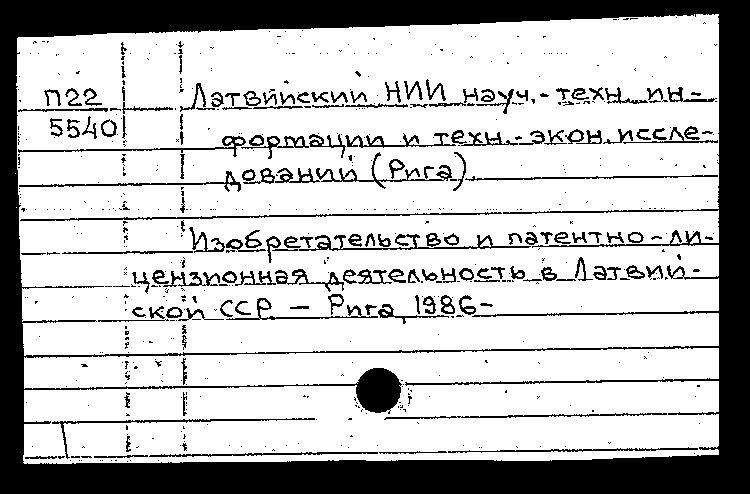 П22
5540
Латвийский НИИ науч.-техн. ин-
формации и техн.-экон. иссле-
дований (Рига).
Изобретательство и патентно-ли-
цензионная деятельность в Латвий-
ской ССР. — Рига, 1986-